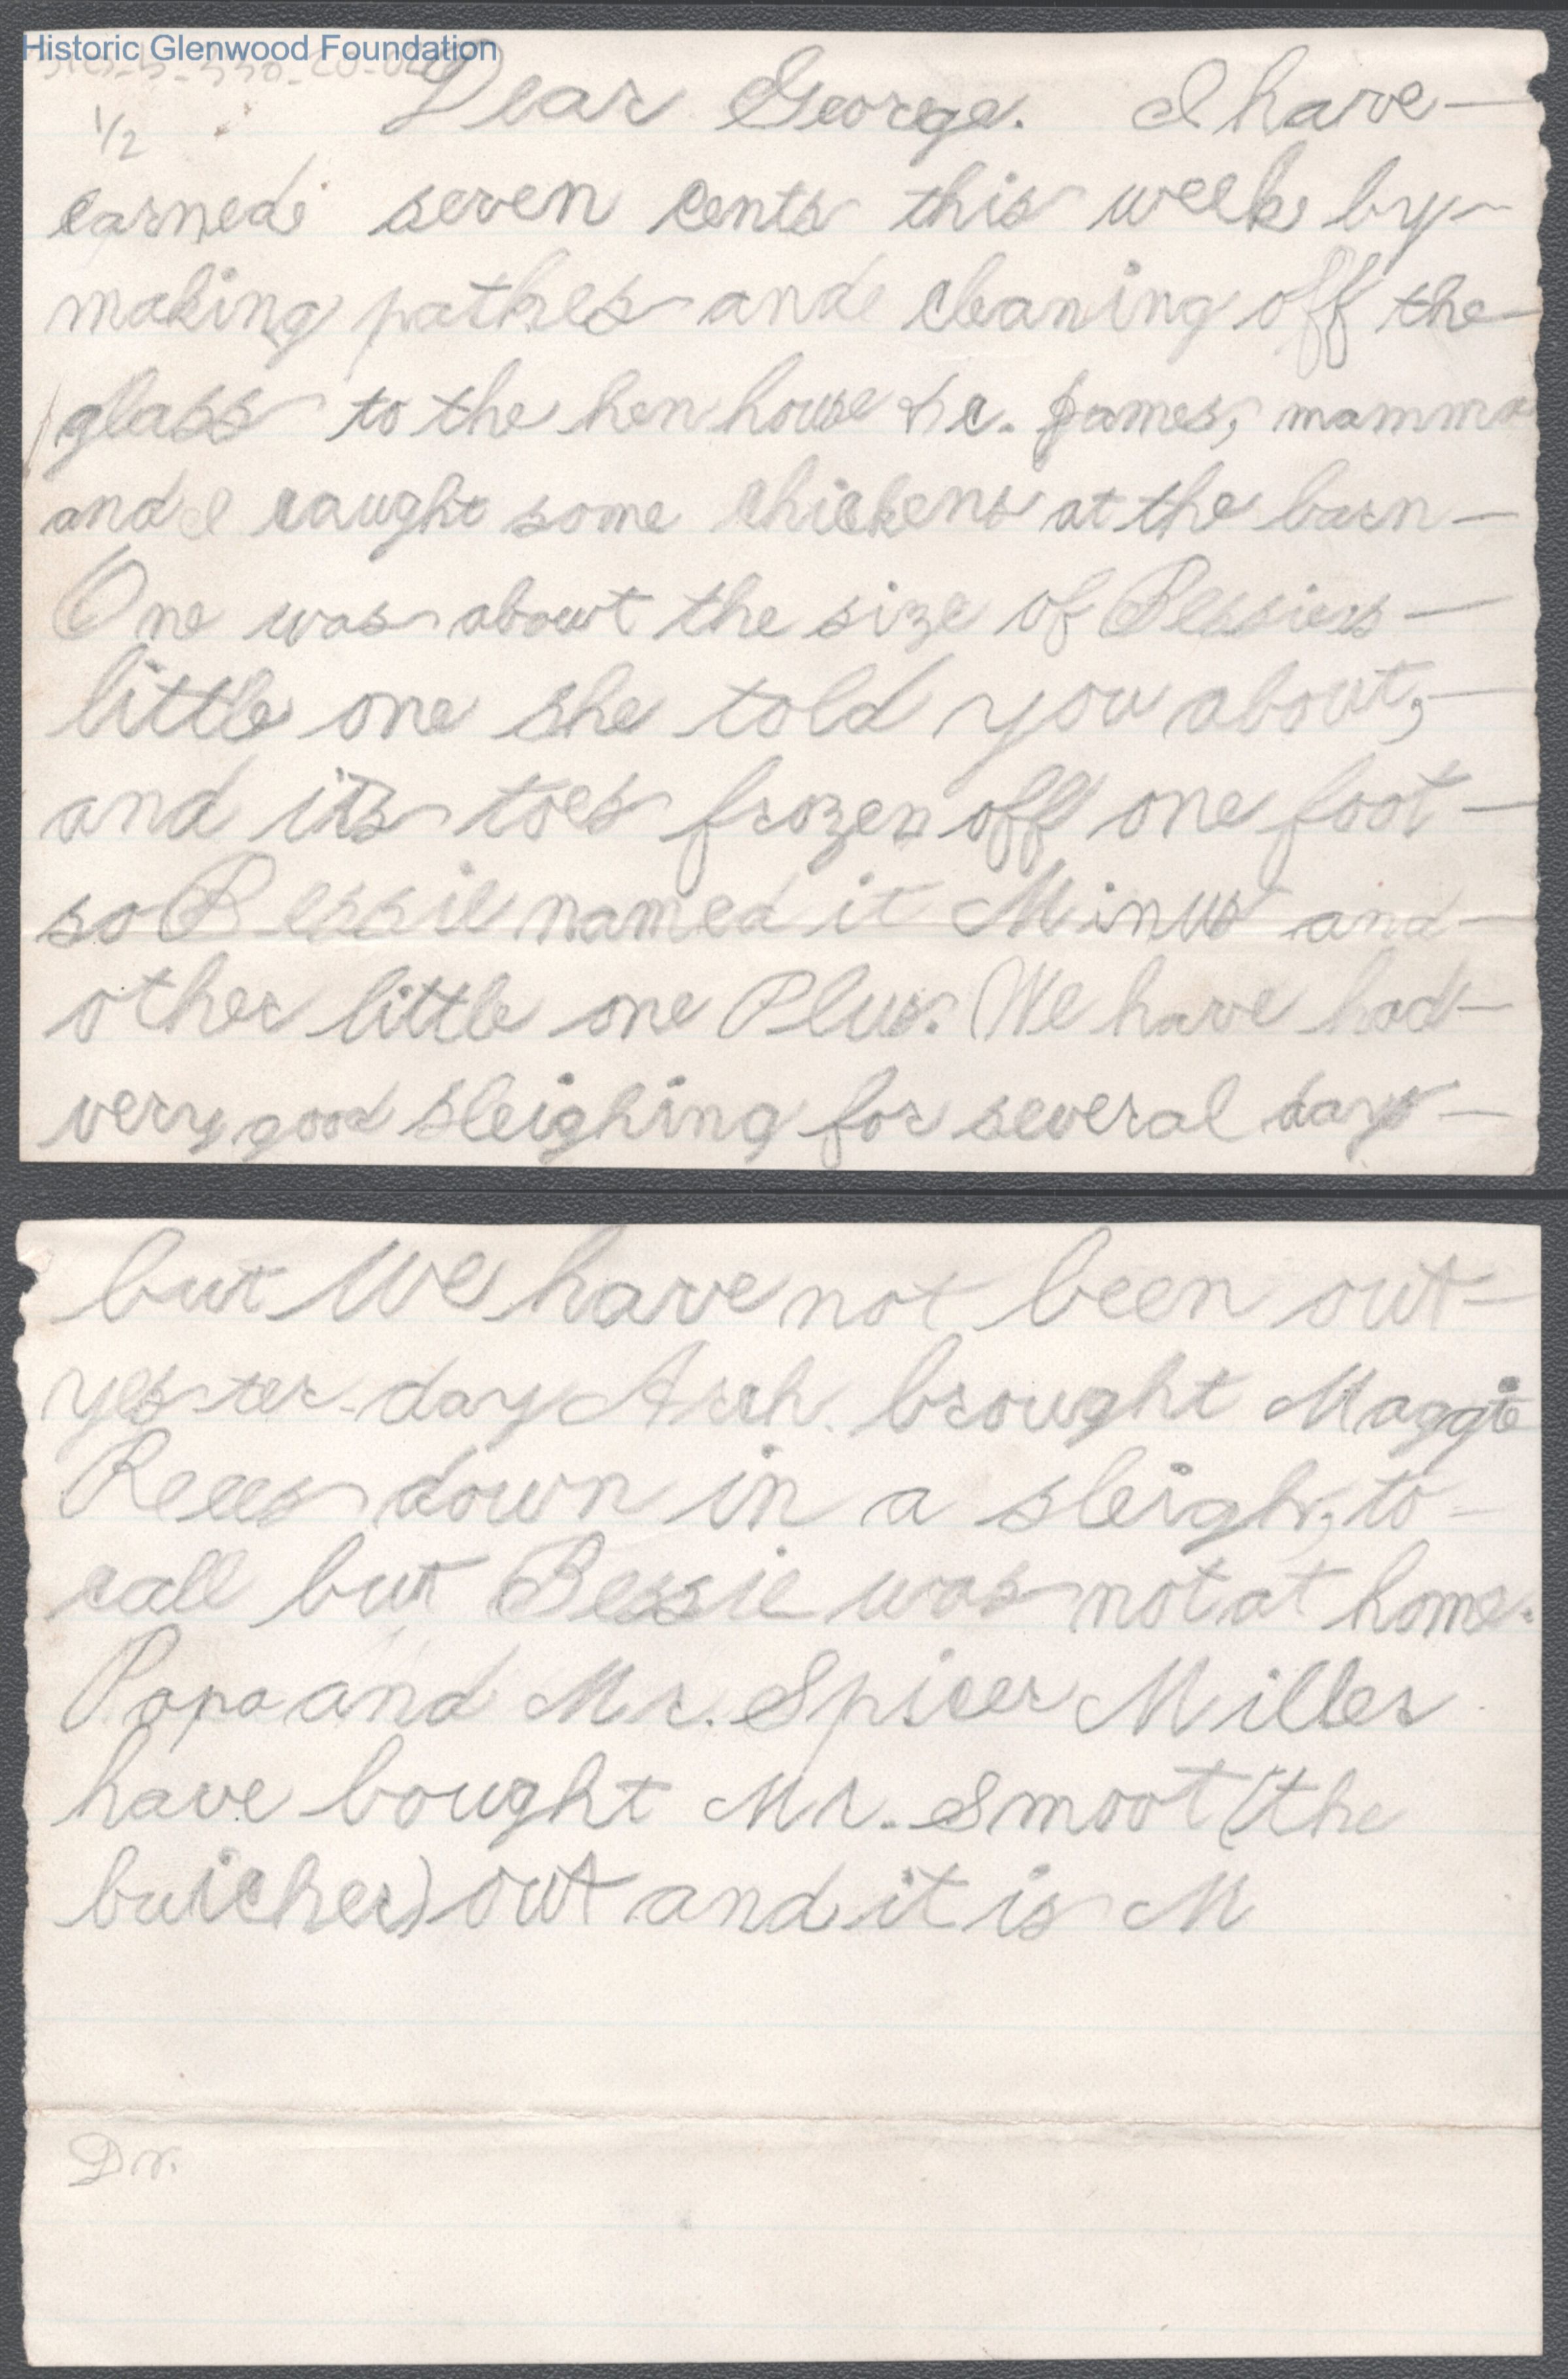 Historic Glenwood Foundation
1/2 Dear George. I have—
earned seven cents this week by—
making pathes and cleaning off the—
glass to the hen house &c. James, mamma
and I caught some chickens at the barn—
One was about the size of Bessies—
little one she told you about,—
and its toes frozen off one foot—
so Bessie named it Minus and—
other little one Plus. We have had—
very good sleighing for several days—
but We have not been out—
yes-ter-day Arch. brought Maggie
down in a sleigh, to—
call but Bessie was not at home.
Papa and Mr. Spicer Miller
have bought Mr. Smoot (the
butcher) out and it is M
Dr.